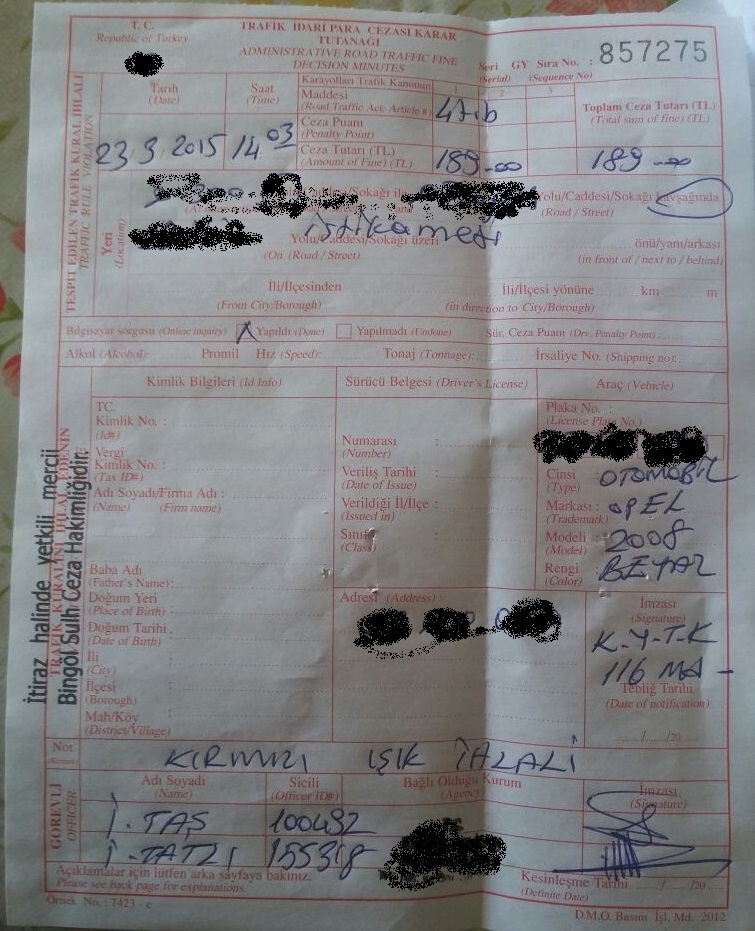 T. C.
Republic of Turkey
TRAFİK İDARİ PARA CEZASI KARAR
TUTANAĞI
ADMINISTRATIVE ROAD TRAFFIC FINE
DECISION MINUTES
Seri GY Sıra No. : 857275
(Serial) (Sequence No)
TESPİT EDİLEN TRAFİK KURAL İHLALİ
TRAFFIC RULE VIOLATION
Tarih
(Date)
Saat
(Time)
Karayolları Trafik Kanunun
Maddesi
(Road Traffic Act: Article #)
1 2 3
47/1b
Toplam Ceza Tutarı (TL)
(Total sum of fine) (TL)
Ceza Puanı
(Penalty Point)
23 3 2015 14 03
Ceza Tutarı (TL)
(Amount of Fine) (TL)
189 -00
189 -00
Yeri
(Location)
Yolu/Caddesi/Sokağı kavşağında
(Road / Street)
istikameti
Yolu/Caddesi/Sokağı üzeri
(On (Road / Street)
önü/yanı/arkası
(in front of / next to / behind)
İli/İlçesinden
(From City/Borough)
İli/İlçesi yönüne km m
(in direction to City/Borough)
Bilgisayar sorgusu (Online inquiry) X Yapıldı (Done) Yapılmadı (Undone) Sür. Ceza Puanı (Drv. Penalty Point)
Alkol (Alcohol): Promil Hız (Speed): Tonaj (Tonnage): İrsaliye No. (Shipping no):
TRAFİK KURALINI İHLAL EDENİN
İtiraz halinde yetkili mercii
Bingöl Sulh Ceza Hakimliğidir.
Kimlik Bilgileri (Id Info)
TC.
Kimlik No. :
(Id#)
Vergi
Kimlik No. :
(Tax ID#)
Adı Soyadı/Firma Adı :
(Name) (Firm name)
Baba Adı
(Father's Name) :
Doğum Yeri
(Place of Birth) :
Doğum Tarihi
(Date of Birth) :
İli
(City) :
İlçesi
(Borough) :
Mah/Köy
(District/Village) :
Sürücü Belgesi (Driver's License)
Numarası
(Number) :
Veriliş Tarihi
(Date of Issue) :
Verildiği İl/İlçe
(Issued in) :
Sınıfı
(Class) :
Adresi (Address) :
Araç (Vehicle)
Plaka No. :
(License Plate No.)
Cinsi : OTOMOBİL
(Type)
Markası : OPEL
(Trademark)
Modeli : 2008
(Model)
Rengi : BEYAZ
(Color)
İmzası
(Signature)
K-Y-T-K
116 MA -
Tebliğ Tarihi
(Date of notification)
...../...../20
Not
KIRMIZI IŞIK İHLALİ
GÖREVLİ
OFFICER
Adı Soyadı
(Name)
Sicili
(Officer ID#)
Bağlı Olduğu Kurum
(Agency)
İmzası
(Signature)
İ. TAŞ 100432
İ. TATLI 155318
Açıklamalar için lütfen arka sayfaya bakınız.
Please see back page for explanations.
Kesinleşme Tarihi / /20
(Definite Date)
Örnek No. : 7423 - c
D.M.O. Basım İşl. Md. 2012